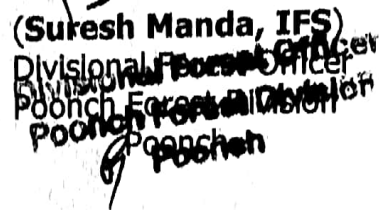 (Suresh Manda, IFS)
Divisional Forest Officer
Poonch Forest Division
Poonch